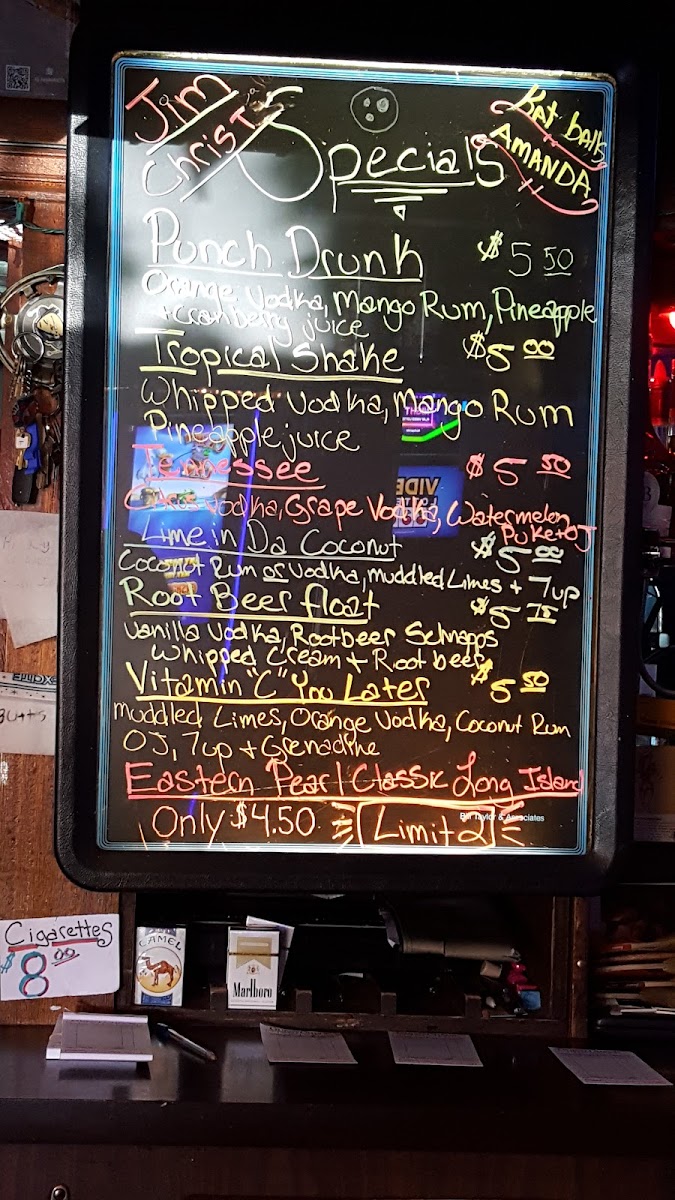 Jim
Christi
Specials
Kat balls
AMANDA
Punch Drunk $5 50
Orange Vodka, Mango Rum, Pineapple
+ Cranberry juice
Tropical Shake $5 00
Whipped Vodka, Mango Rum
Pineapple juice
Tennessee $5 50
Vodka, Grape Vodka, Watermelon
Puke + OJ
Lime in Da Coconut $5 00
Coconut Rum or Vodka, muddled Limes + 7up
Root Beer float $5 75
Vanilla Vodka, Rootbeer Schnapps
Whipped Cream + Root beer
Vitamin "C" You Later $5 50
muddled Limes, Orange Vodka, Coconut Rum
OJ, 7up + Grenadine
Eastern Pearl Classic Long Island
Only $4.50 Limit 2
Bill Taylor & Associates
Cigarettes
$8 00
CAMEL
Marlboro